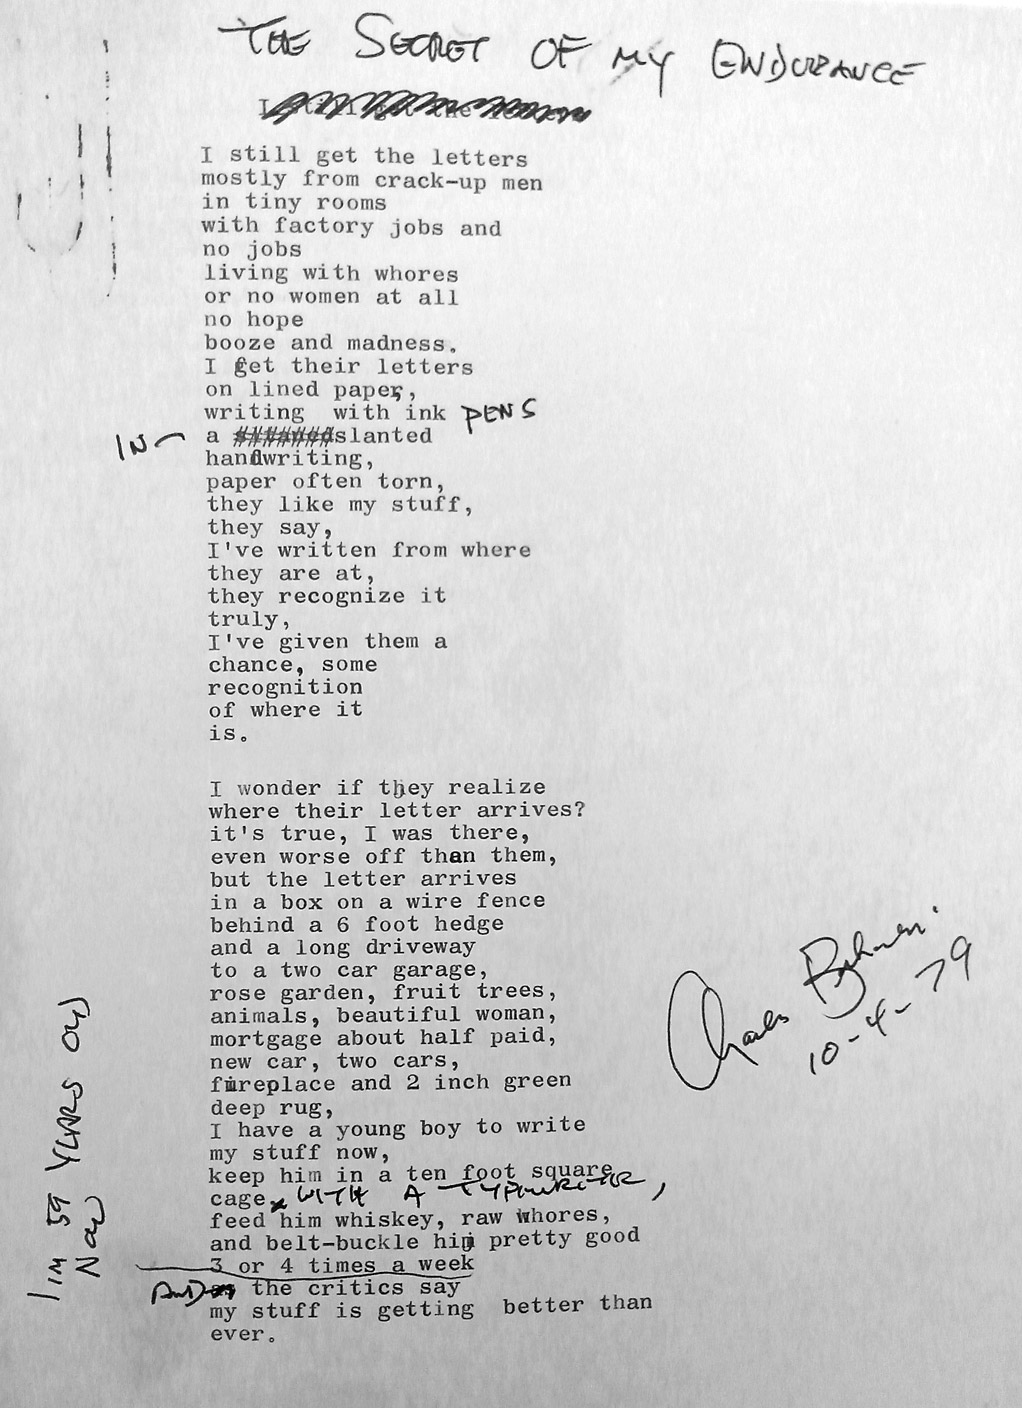 THE SECRET OF MY ENDURANCE
I still get the letters
I still get the letters
mostly from crack-up men
in tiny rooms
with factory jobs and
no jobs
living with whores
or no women at all
no hope
booze and madness.
I get their letters
on lined paper,
writing with ink PENS
IN a slanted
handwriting,
paper often torn,
they like my stuff,
they say,
I've written from where
they are at,
they recognize it
truly,
I've given them a
chance, some
recognition
of where it
is.
I wonder if they realize
where their letter arrives?
it's true, I was there,
even worse off than them,
but the letter arrives
in a box on a wire fence
behind a 6 foot hedge
and a long driveway
to a two car garage,
rose garden, fruit trees,
animals, beautiful woman,
mortgage about half paid,
new car, two cars,
fireplace and 2 inch green
deep rug,
I have a young boy to write
my stuff now,
keep him in a ten foot square
cage WITH A TYPEWRITER,
feed him whiskey, raw whores,
and belt-buckle him pretty good
3 or 4 times a week
AND the critics say
my stuff is getting better than
ever.
I'M 59 YEARS OLD
NOW
Charles Bukowski
10-4-79